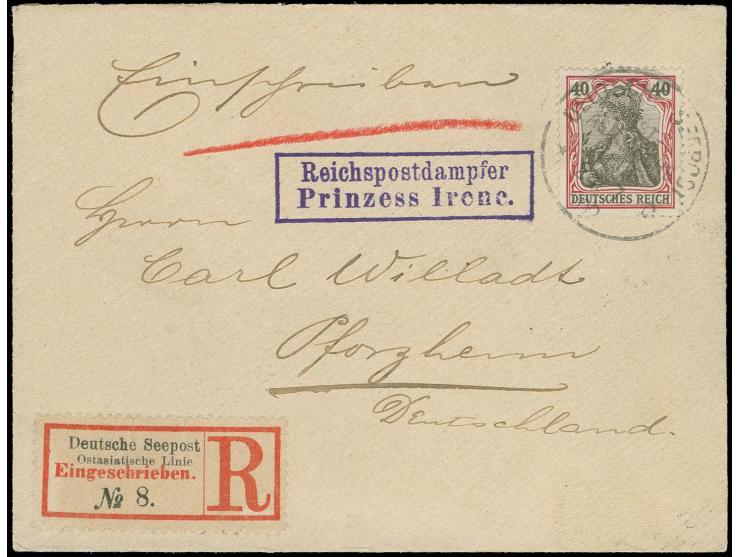 Einschreiben
40 40
DEUTSCHES REICH
DEUTSCHE SEEPOST
Reichspostdampfer
Prinzess Irene.
Herrn
Carl Willadt
Pforzheim
Deutschland.
Deutsche Seepost
Ostasiatische Linie
Eingeschrieben.
№ 8.
R